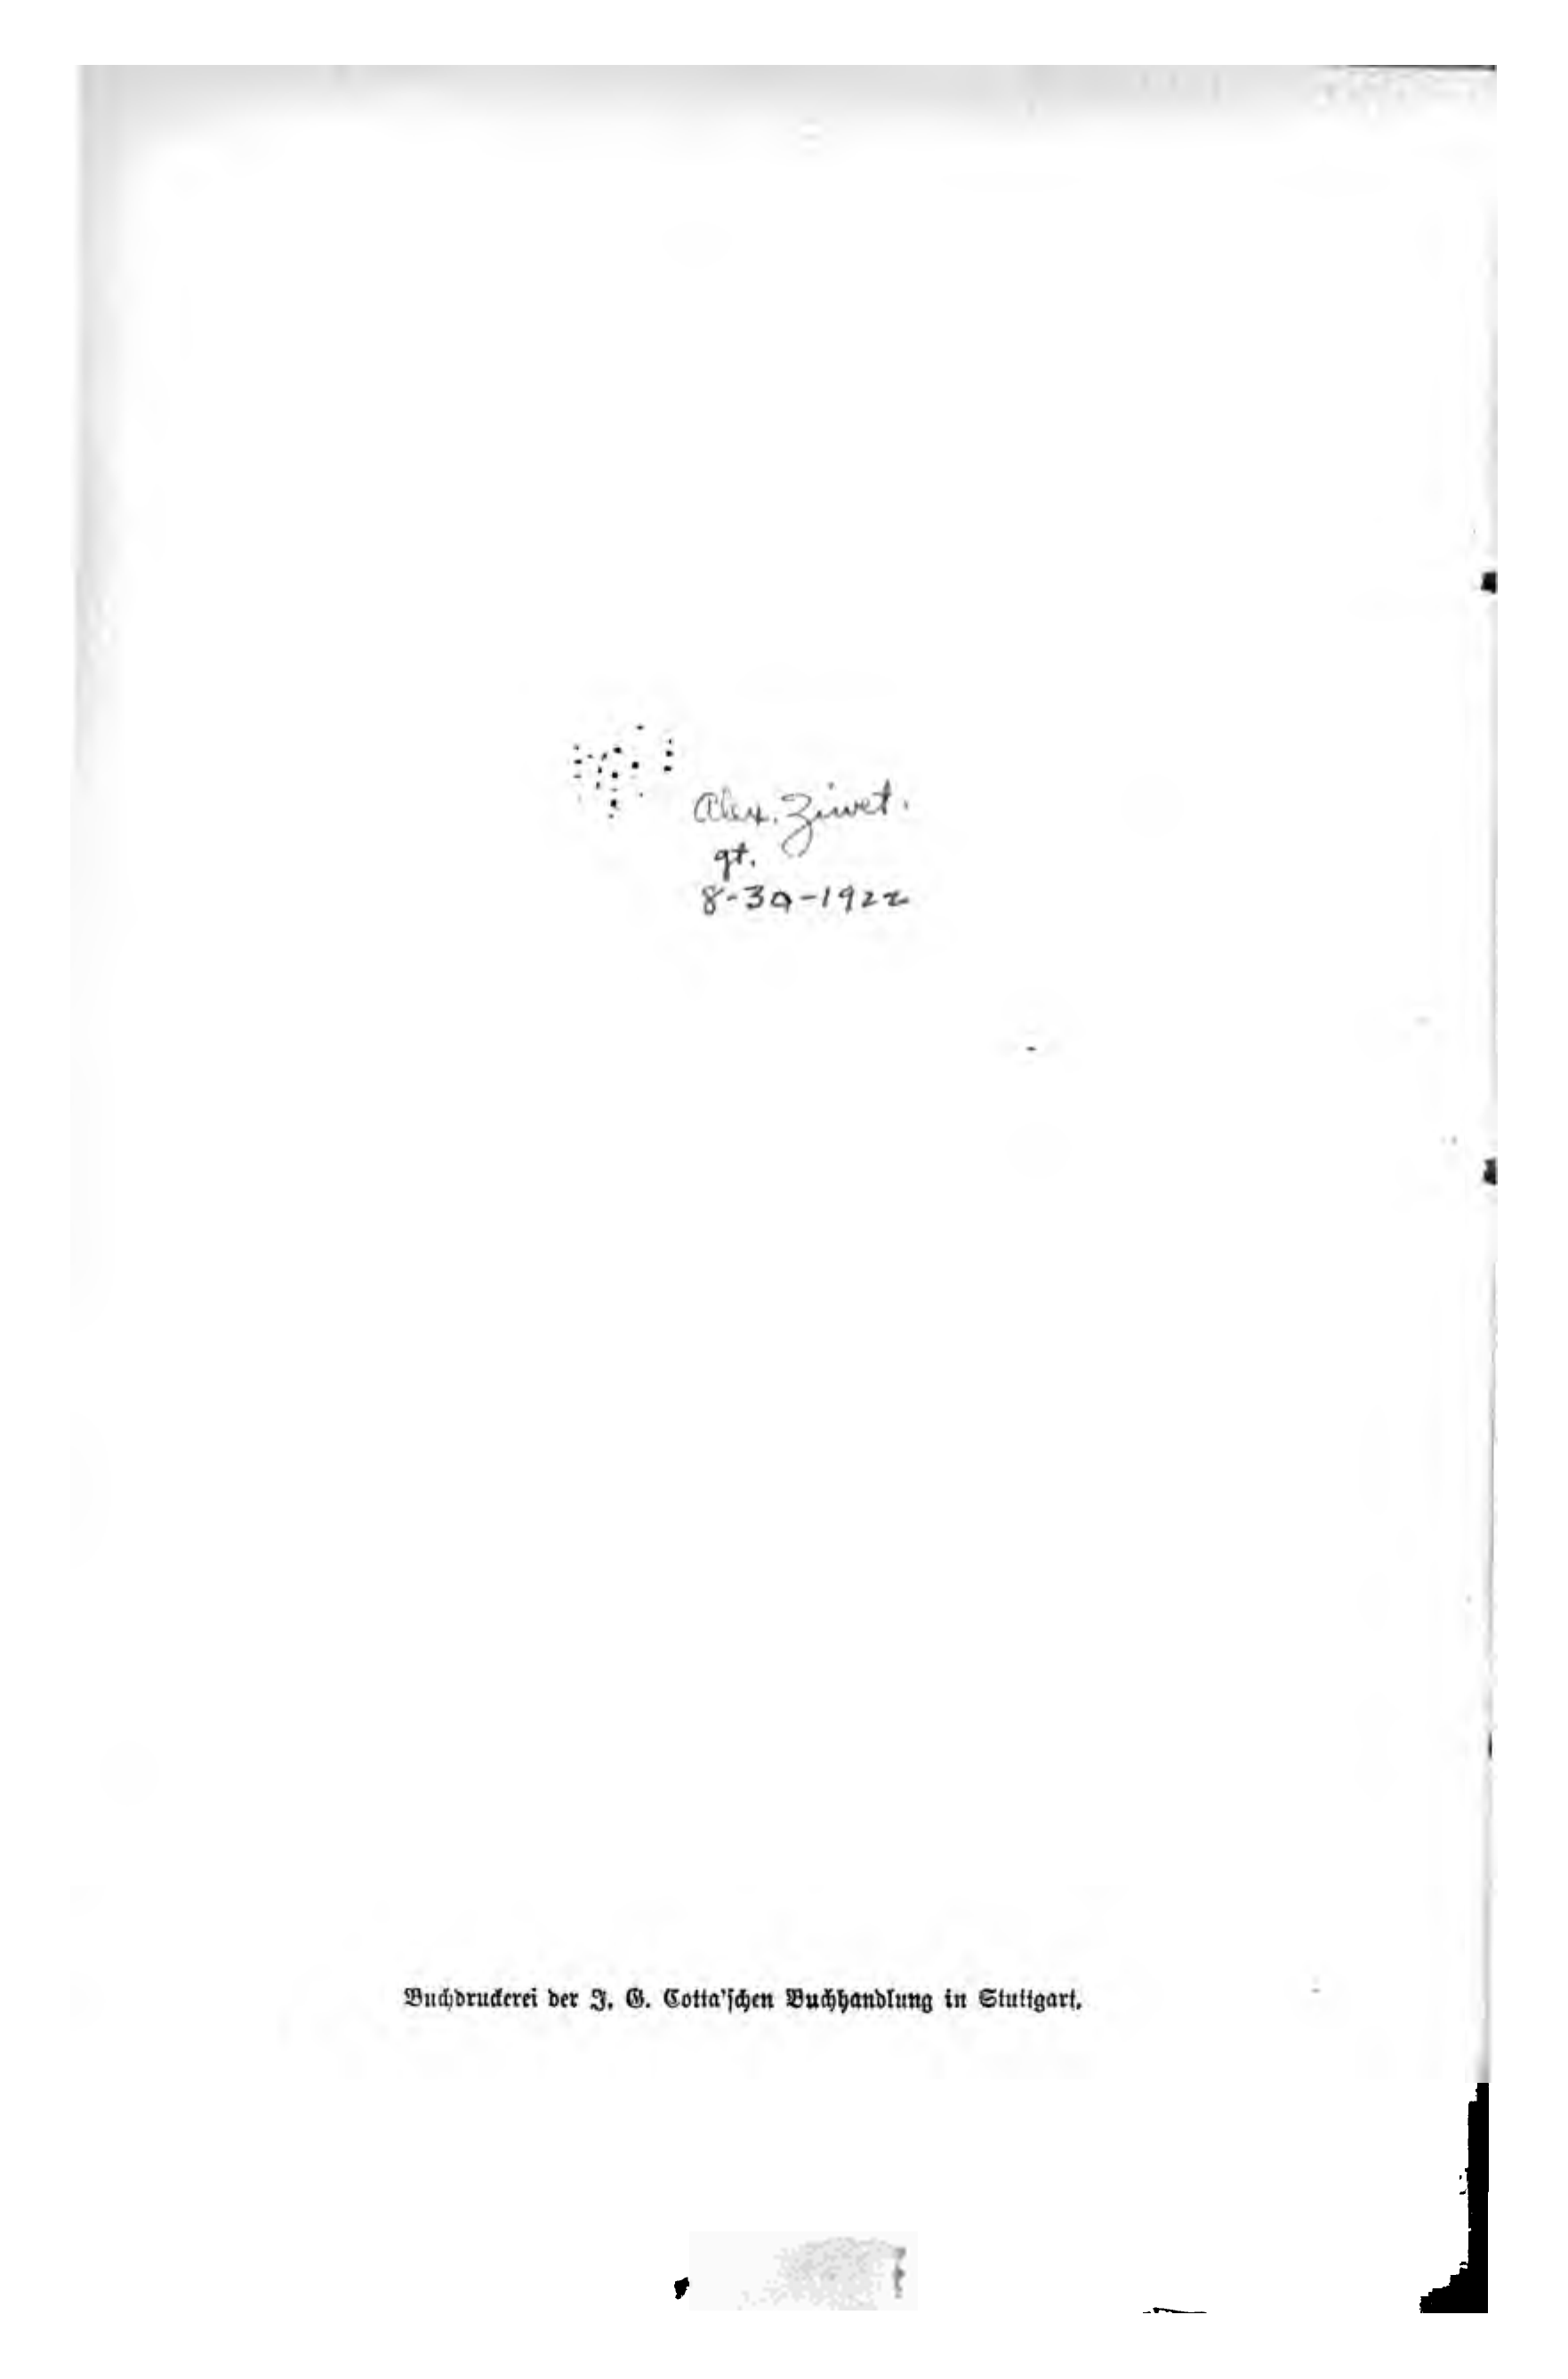 Alex. Ziwet.
gt.
8-30-1922
Buchdruckerei der J. G. Cotta'schen Buchhandlung in Stuttgart.